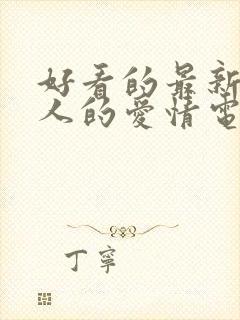 好看的最新
人的爱情电
丁宁